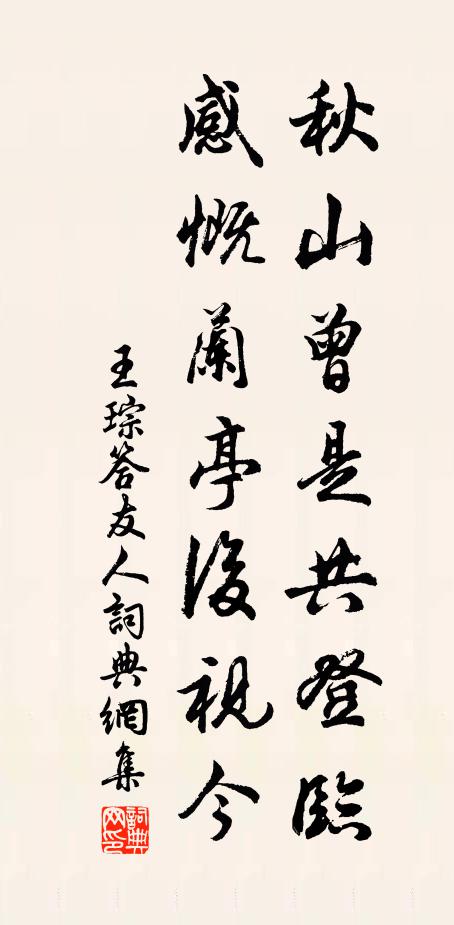 秋山曾是共登臨
感慨蘭亭後視今
王琮答友人詞典網集
詞典網印